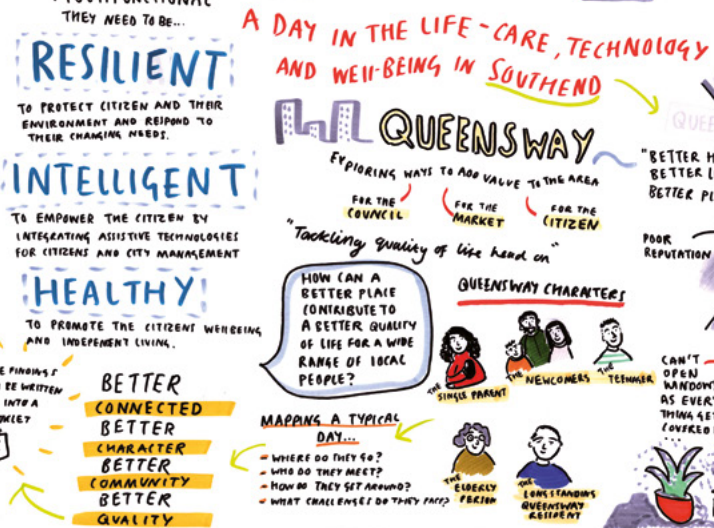 THEY NEED TO BE...
RESILIENT
TO PROTECT CITIZEN AND THEIR
ENVIRONMENT AND RESPOND TO
THEIR CHANGING NEEDS.
INTELLIGENT
TO EMPOWER THE CITIZEN BY
INTEGRATING ASSISTIVE TECHNOLOGIES
FOR CITIZENS AND CITY MANAGEMENT
HEALTHY
TO PROMOTE THE CITIZENS WELLBEING
AND INDEPENENT LIVING.
FINDINGS
BE WRITTEN
INTO A
BETTER
CONNECTED
BETTER
CHARACTER
BETTER
COMMUNITY
BETTER
QUALITY
A DAY IN THE LIFE - CARE, TECHNOLOGY
AND WEll-BEING IN SOUTHEND
QUEENSWAY
EXPLORING WAYS TO ADD VALUE TO THE AREA
FOR THE
COUNCIL
FOR THE
MARKET
FOR THE
CITIZEN
"Tackling quality of life head on"
HOW CAN A
BETTER PLACE
CONTRIBUTE TO
A BETTER QUALITY
OF LIFE FOR A WIDE
RANGE OF LOCAL
PEOPLE?
QUEENSWAY CHARACTERS
THE SINGLE PARENT
THE NEWCOMERS
THE TEENAGER
THE ELDERLY
PERSON
THE LONGSTANDING
QUEENSWAY
RESIDENT
MAPPING A TYPICAL
DAY...
- WHERE DO THEY GO?
- WHO DO THEY MEET?
- HOW DO THEY GET AROUND?
- WHAT CHALLENGES DO THEY FACE?
"BETTER
BETTER
BETTER
POOR
REPUTATION
CAN'T
OPEN
WINDOW
AS EVERY
THING GE
COVERED